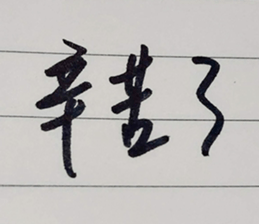 辛苦了